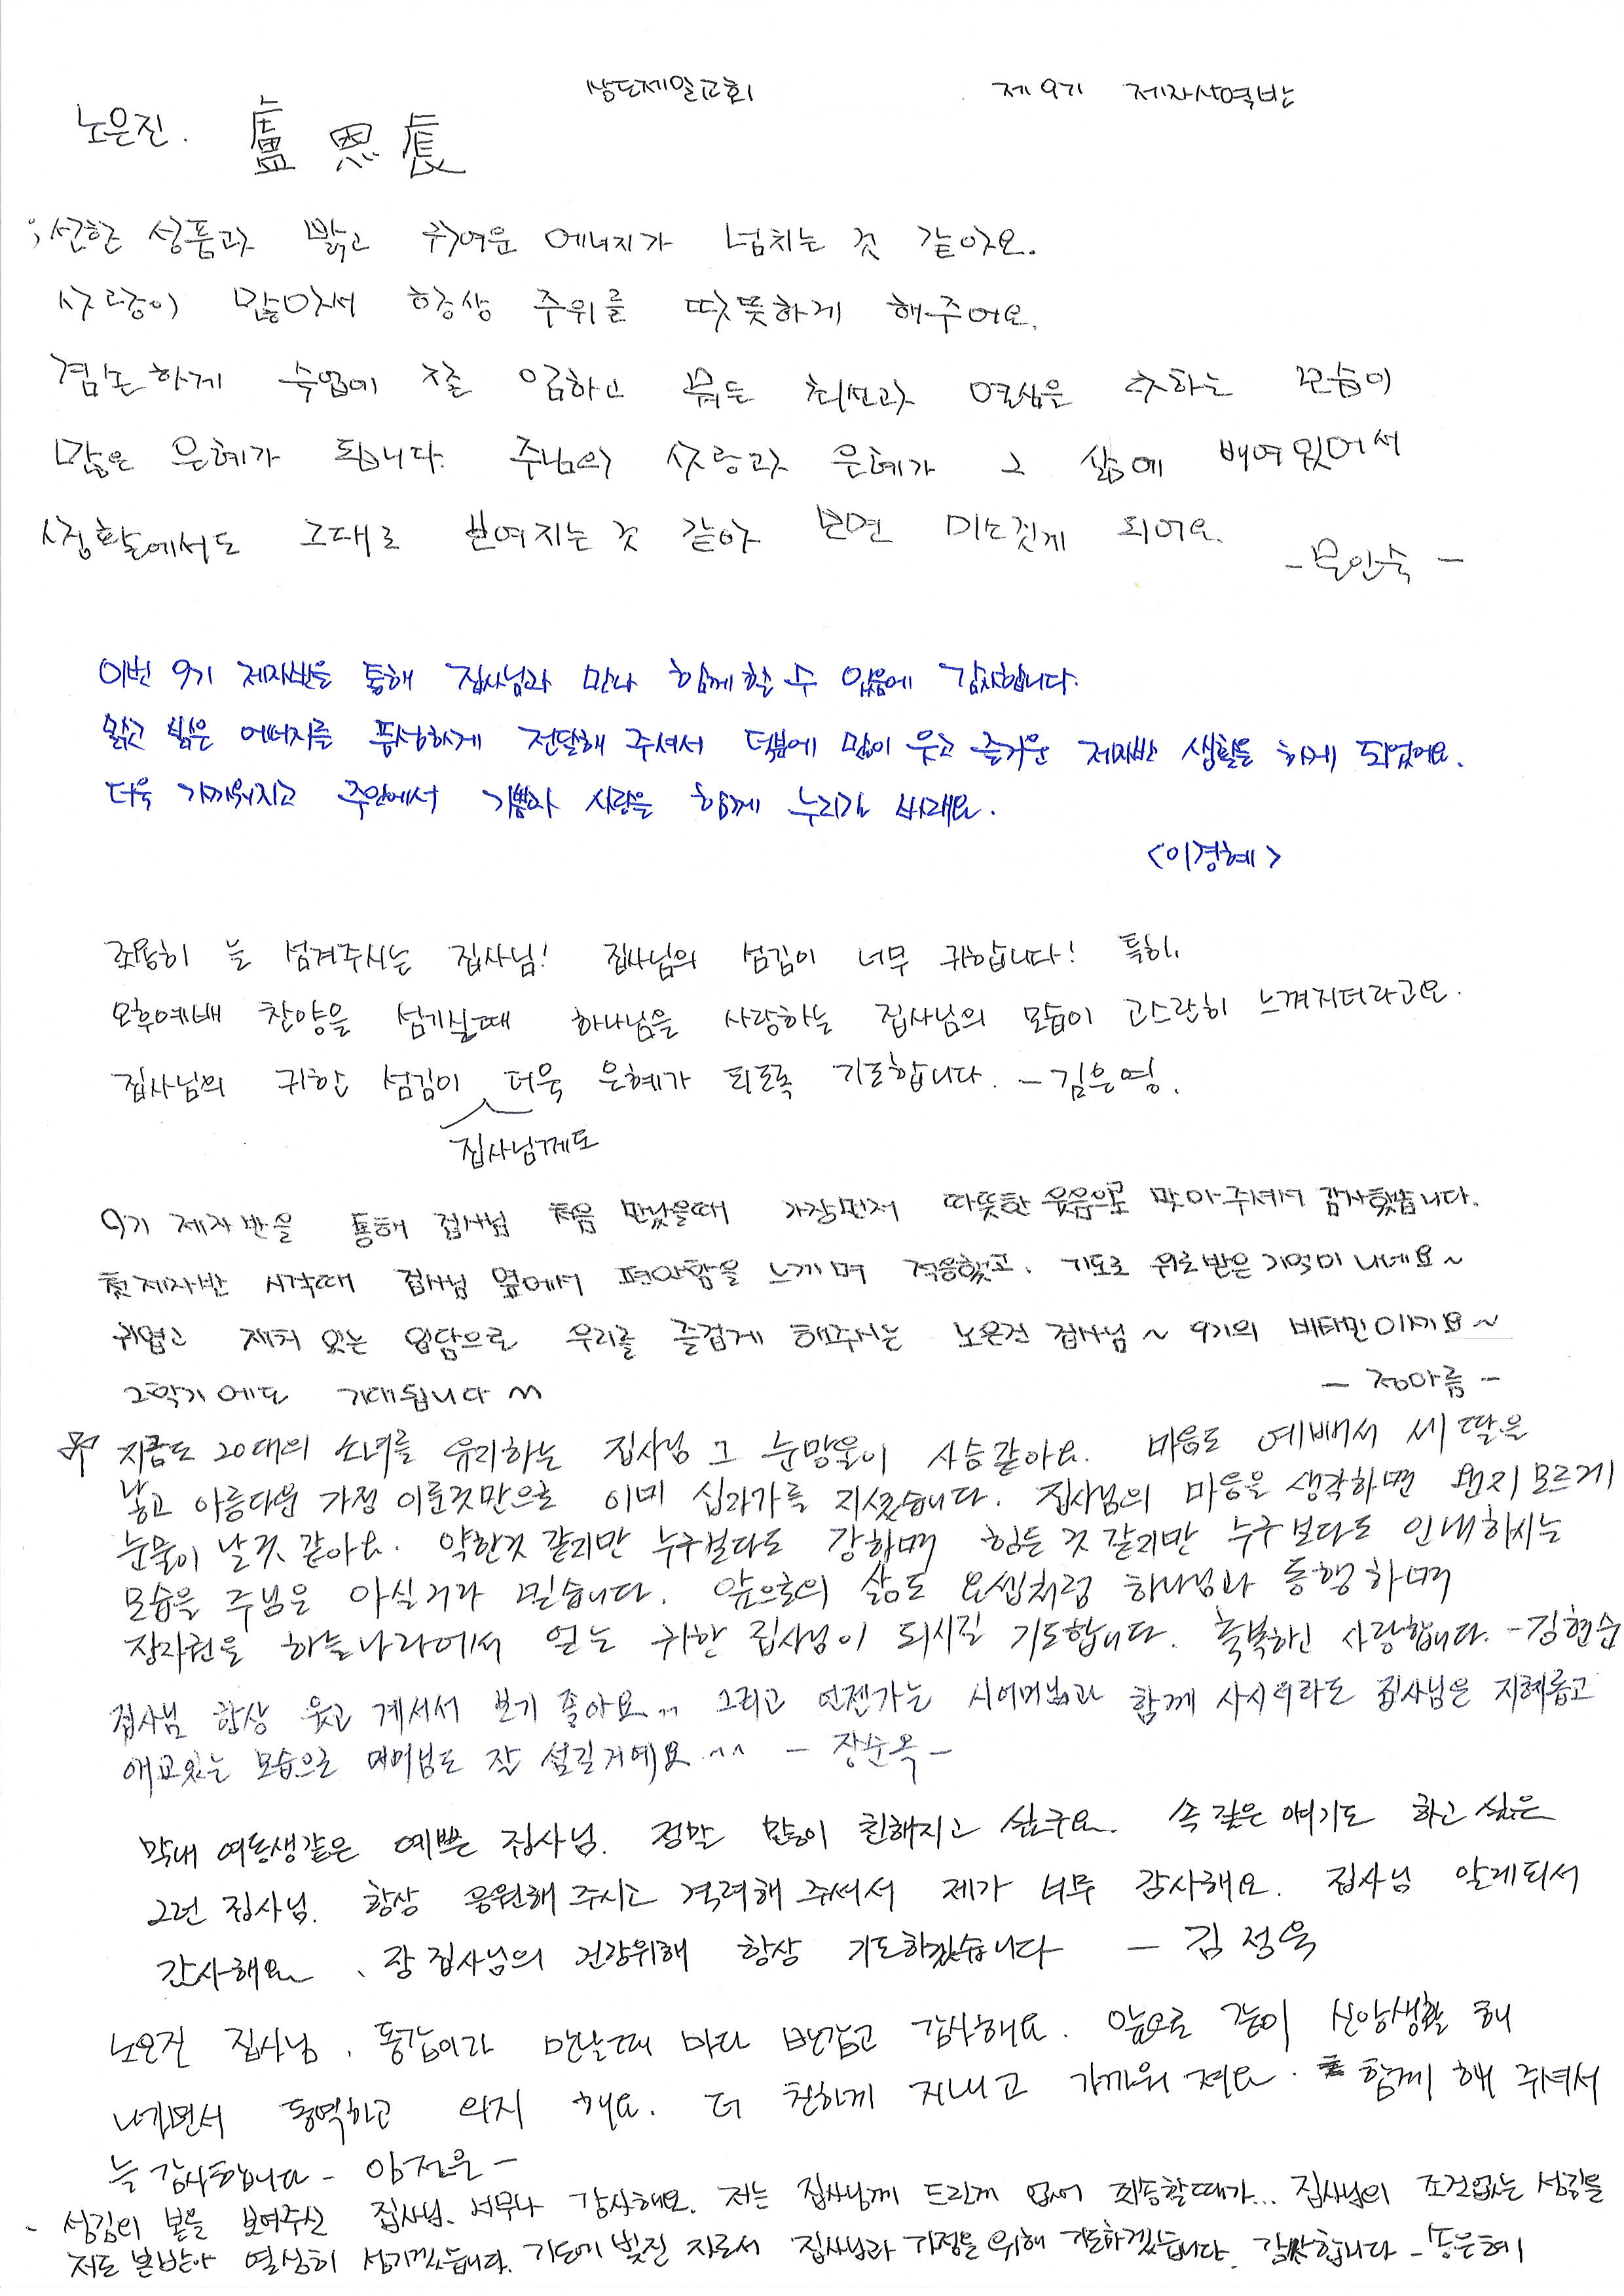 상도제일교회 제9기 제자사역반
노은진. 盧恩辰
; 선한 성품과 밝고 귀여운 에너지가 넘치는 것 같아요.
사랑이 많아서 항상 주위를 따뜻하게 해주어요.
겸손하게 수업에 잘 임하고 뭐든 최선과 열심을 취하는 모습이
많은 은혜가 됩니다. 주님의 사랑과 은혜가 그 삶에 배여있어서
생활에서도 그대로 보여지는 것 같아 보면 미소짓게 되어요.
- 문인숙 -
이번 9기 제자반을 통해 집사님과 만나 함께 할 수 있음에 감사합니다.
맑고 밝은 에너지를 풍성하게 전달해 주셔서 덕분에 많이 웃고 즐거운 제자반 생활을 하게 되었어요.
더욱 가까워지고 주안에서 기쁨과 사랑을 함께 누리길 바래요.
<이경혜>
조용히 늘 섬겨주시는 집사님! 집사님의 섬김이 너무 귀합니다! 특히,
오후예배 찬양을 섬기실때 하나님을 사랑하는 집사님의 모습이 고스란히 느껴지더라고요.
집사님의 귀한 섬김이 더욱 은혜가 되도록 기도합니다. - 김은영.
집사님께도
9기 제자반을 통해 집사님 처음 만났을때 가장먼저 따뜻한 웃음으로 맞아주셔서 감사했습니다.
첫 제자반 시작때 집사님 옆에서 편안함을 느끼며 적응했고, 기도로 위로받은 기억이 나네요~
귀엽고 재치 있는 입담으로 우리를 즐겁게 해주시는 노은진 집사님 ~ 9기의 비타민이지요~
2학기에도 기대됩니다 ^^ - 정아름 -
지금도 20대의 소녀를 유지하는 집사님 그 눈망울이 사슴같아요. 마음도 예뻐서 세 딸을
낳고 아름다운 가정 이룬것만으로 이미 십자가를 지셨습니다. 집사님의 마음을 생각하면 왠지 모르게
눈물이 날것 같아요. 약한것 같지만 누구보다도 강하며 힘든 것 같지만 누구보다도 인내하시는
모습을 주님은 아실거라 믿습니다. 앞으로의 삶도 요셉처럼 하나님과 동행하며
장자권을 하늘나라에서 얻는 귀한 집사님이 되시길 기도합니다. 축복하고 사랑합니다. - 김현숙
집사님 항상 웃고 계셔서 보기 좋아요.. 그리고 언젠가는 시어머님과 함께 사시더라도 집사님은 지혜롭고
애교있는 모습으로 어머님도 잘 섬길거예요.^^ - 장순옥 -
막내 여동생같은 예쁜 집사님. 정말 많이 친해지고 싶구요. 속 깊은 얘기도 하고 싶은
그런 집사님. 항상 응원해 주시고 격려해 주셔서 제가 너무 감사해요. 집사님 알게되서
감사해요 、장 집사님의 건강위해 항상 기도하겠습니다 - 김정욱
노은진 집사님, 동갑이라 만날때 마다 반갑고 감사해요. 앞으로 같이 신앙생활 해
나가면서 동역하고 의지 해요. 더 친하게 지내고 가까워 져요. 함께 해 주셔서
늘 감사합니다 - 양전은 -
섬김의 본을 보여주신 집사님. 너무나 감사해요. 저는 집사님께 드린게 없어 죄송할따름... 집사님의 조건없는 섬김을
저도 본받아 열심히 섬기겠습니다. 기도에 빚진 자로서 집사님과 가정을 위해 기도하겠습니다. 감사합니다 - 송은혜